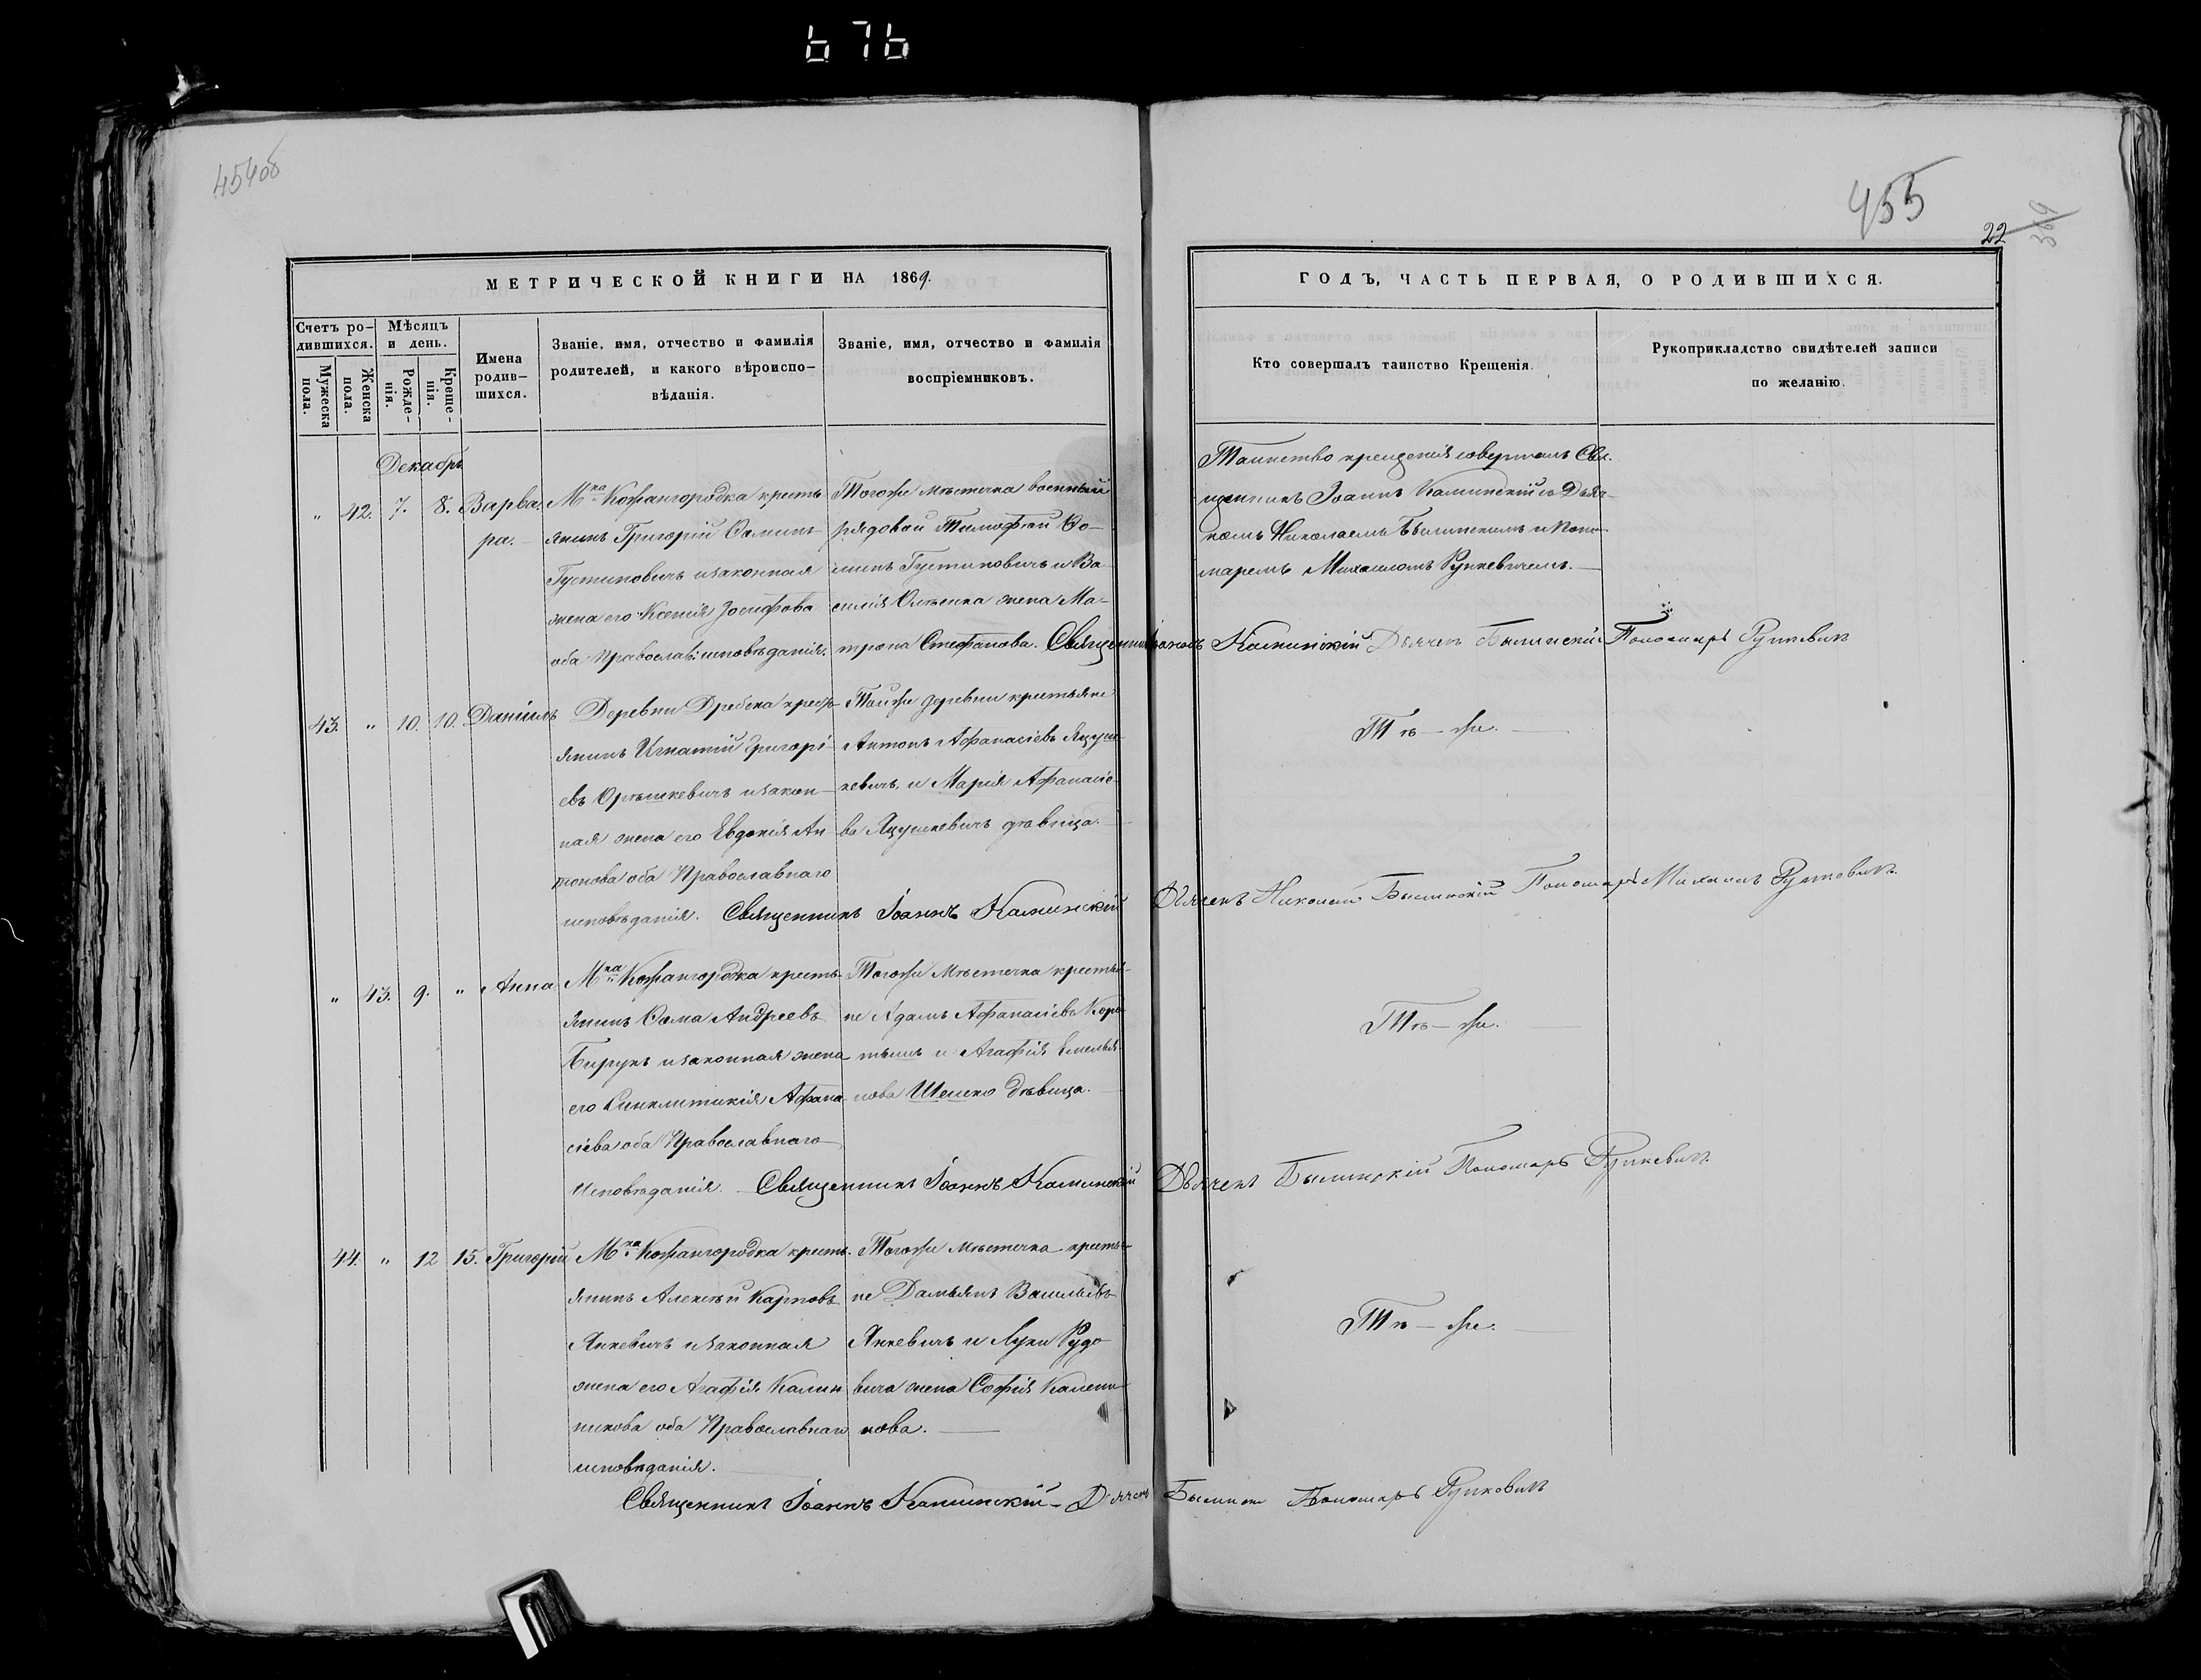 676
454об
455
22
369
МЕТРИЧЕСКОЙ КНИГИ НА 1869.
ГОДЪ, ЧАСТЬ ПЕРВАЯ, О РОДИВШИХСЯ.
Счетъ ро-
дившихся.
Мужеска
пола.
Женска
пола.
Мѣсяцъ
и день.
Рожде-
нія.
Креще-
нія.
Имена
родив-
шихся.
Званіе, имя, отчество и фамилія
родителей, и какого вѣроиспо-
вѣданія.
Званіе, имя, отчество и фамилія
воспріемниковъ.
Кто совершалъ таинство Крещенія.
Рукоприкладство свидѣтелей записи
по желанію.
Декабрь
" 42. 7. 8. Варва-
ра.
Мка Кожангородка кресть-
янинъ Григорій Ѳоминъ
Густиновичъ и законная
жена его Ксенія Іосифова
оба Православ. исповѣданія.
Тогоже мѣстечка военный
рядовой Тимофей Ѳо-
минъ Густиновичъ и Ва-
силія жена Ма-
трона Стефанова.
Таинство крещенія совершалъ Свя-
щенникъ Іоаннъ Каминскій съ Дьяч-
комъ Николаемъ Былинскимъ и Поно-
маремъ Михаиломъ Рункевичемъ.
Священникъ Іоаннъ Каминскій Дьячекъ Былинскій Пономарь Рункевичъ
43. " 10. 10. Даніилъ
Деревни Дребска крест-
янинъ Игнатій Григорі-
евъ Орѣшкевичъ и закон-
ная жена его Евдокія Ан-
тонова оба Православнаго
исповѣданія.
Тойже деревни крестьяне
Антонъ Афанасіевъ Яцуш-
кевичъ, и Марія Афанасіе-
ва Яцушкевичъ дѣвица.
Тѣ-же.
Священникъ Іоаннъ Каминскій Дьячекъ Николай Былинскій Пономарь Михаилъ Рункевичъ
" 43. 9. " Анна
Мка Кожангородка кресть-
янинъ Ѳома Андреевъ
Бирукъ и законная жена
его Синклитикія Афана-
сіева оба Православнаго
Исповѣданія.
Тогоже Мѣстечка крестья-
не Адамъ Афанасіевъ Коро-
тышъ и Агафія Емелья-
нова Шешко дѣвица.
Тѣ-же.
Священникъ Іоаннъ Каминскій Дьячекъ Былинскій Пономарь Рункевичъ
44. " 12 15. Григорій
Мка Кожангородка кресть-
янинъ Алексѣй Карповъ
Янкевичъ и законная
жена его Агафія Калин-
никова оба Православнаго
исповѣданія.
Тогоже мѣстечка крестья-
не Дамьянъ Васильевъ
Янкевичъ и Луки Рудо-
вича жена Софія Калени-
кова.
Тѣ-же.
Священникъ Іоаннъ Каминскій Дьячекъ Былинский Пономарь Рункевичъ